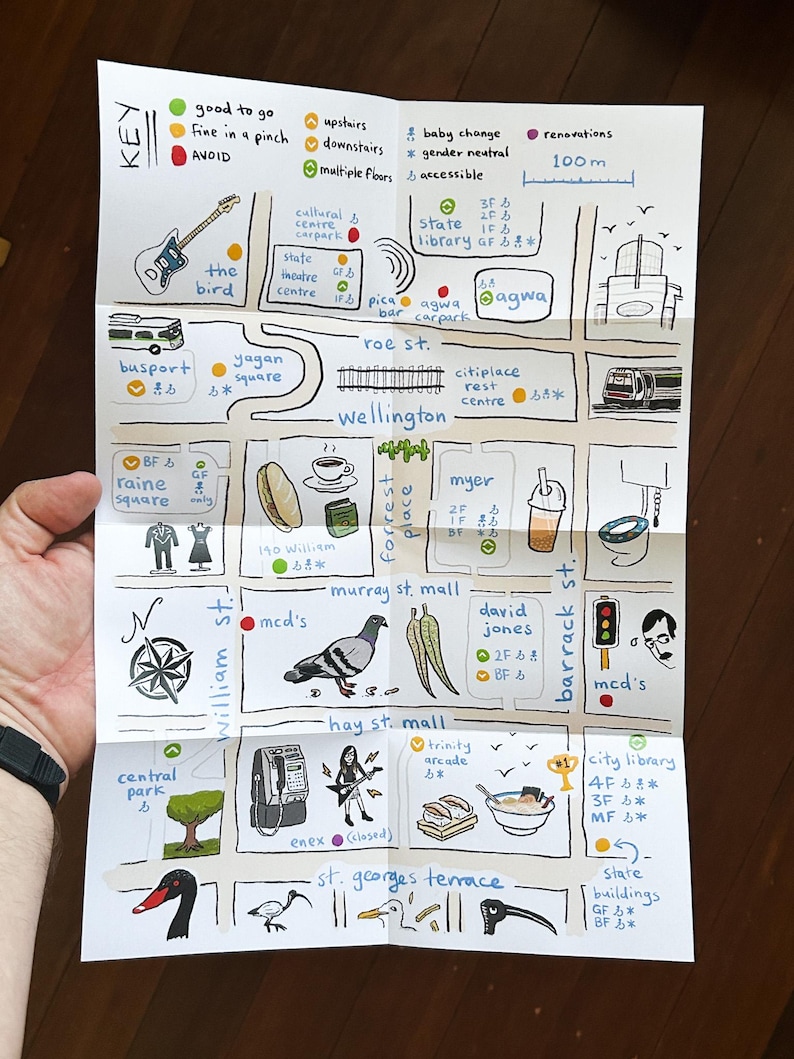 KEY
good to go
fine in a pinch
AVOID
upstairs
downstairs
multiple floors
baby change
gender neutral
accessible
renovations
100m
the
bird
cultural
centre
carpark
state
theatre
centre
GF
1F
state
library
3F
2F
1F
GF
pica
bar
agwa
carpark
agwa
roe st.
busport
yagan
square
citiplace
rest
centre
wellington
BF
GF
only
raine
square
140 William
forrest
place
myer
2F
1F
BF
murray st. mall
william st.
barrack st.
N
mcd's
david
jones
2F
BF
mcd's
hay st. mall
central
park
enex
(closed)
trinity
arcade
#1
city library
4F
3F
MF
state
buildings
GF
BF
st. georges terrace